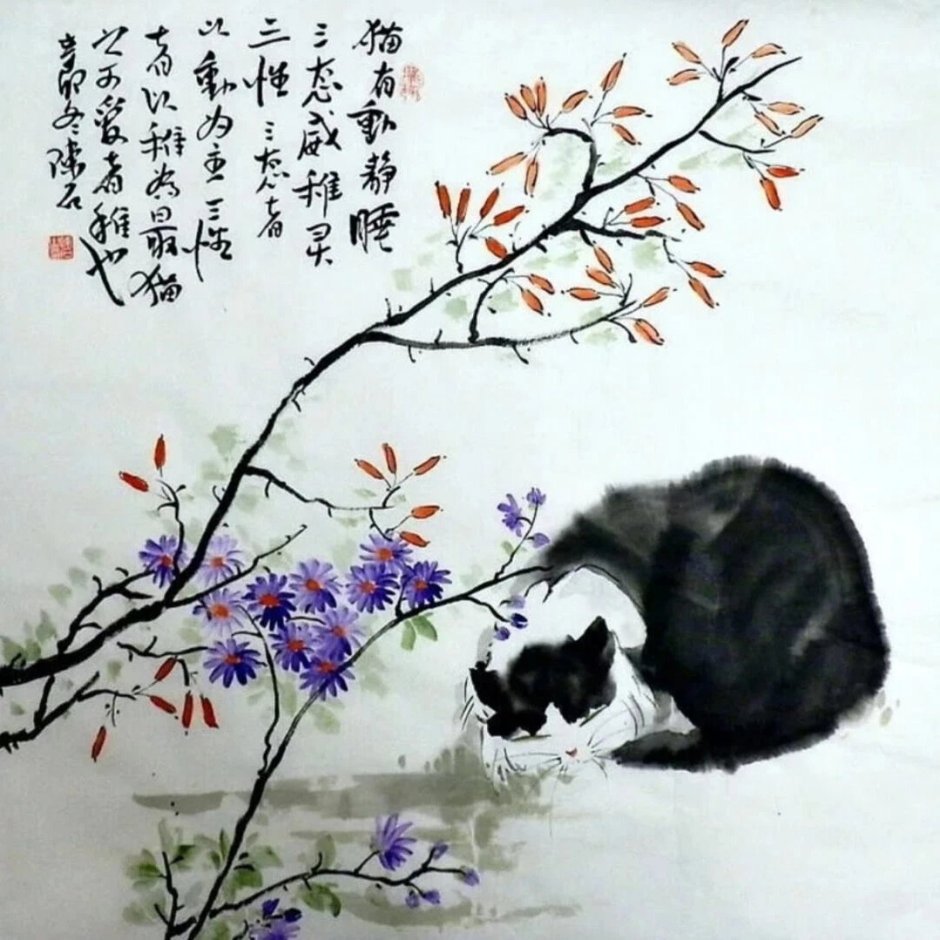 猫有動静睡
三态威稚灵
三性三态者
以動为主三性
者以稚為最猫
之可愛者稚也
辛卯冬陈石